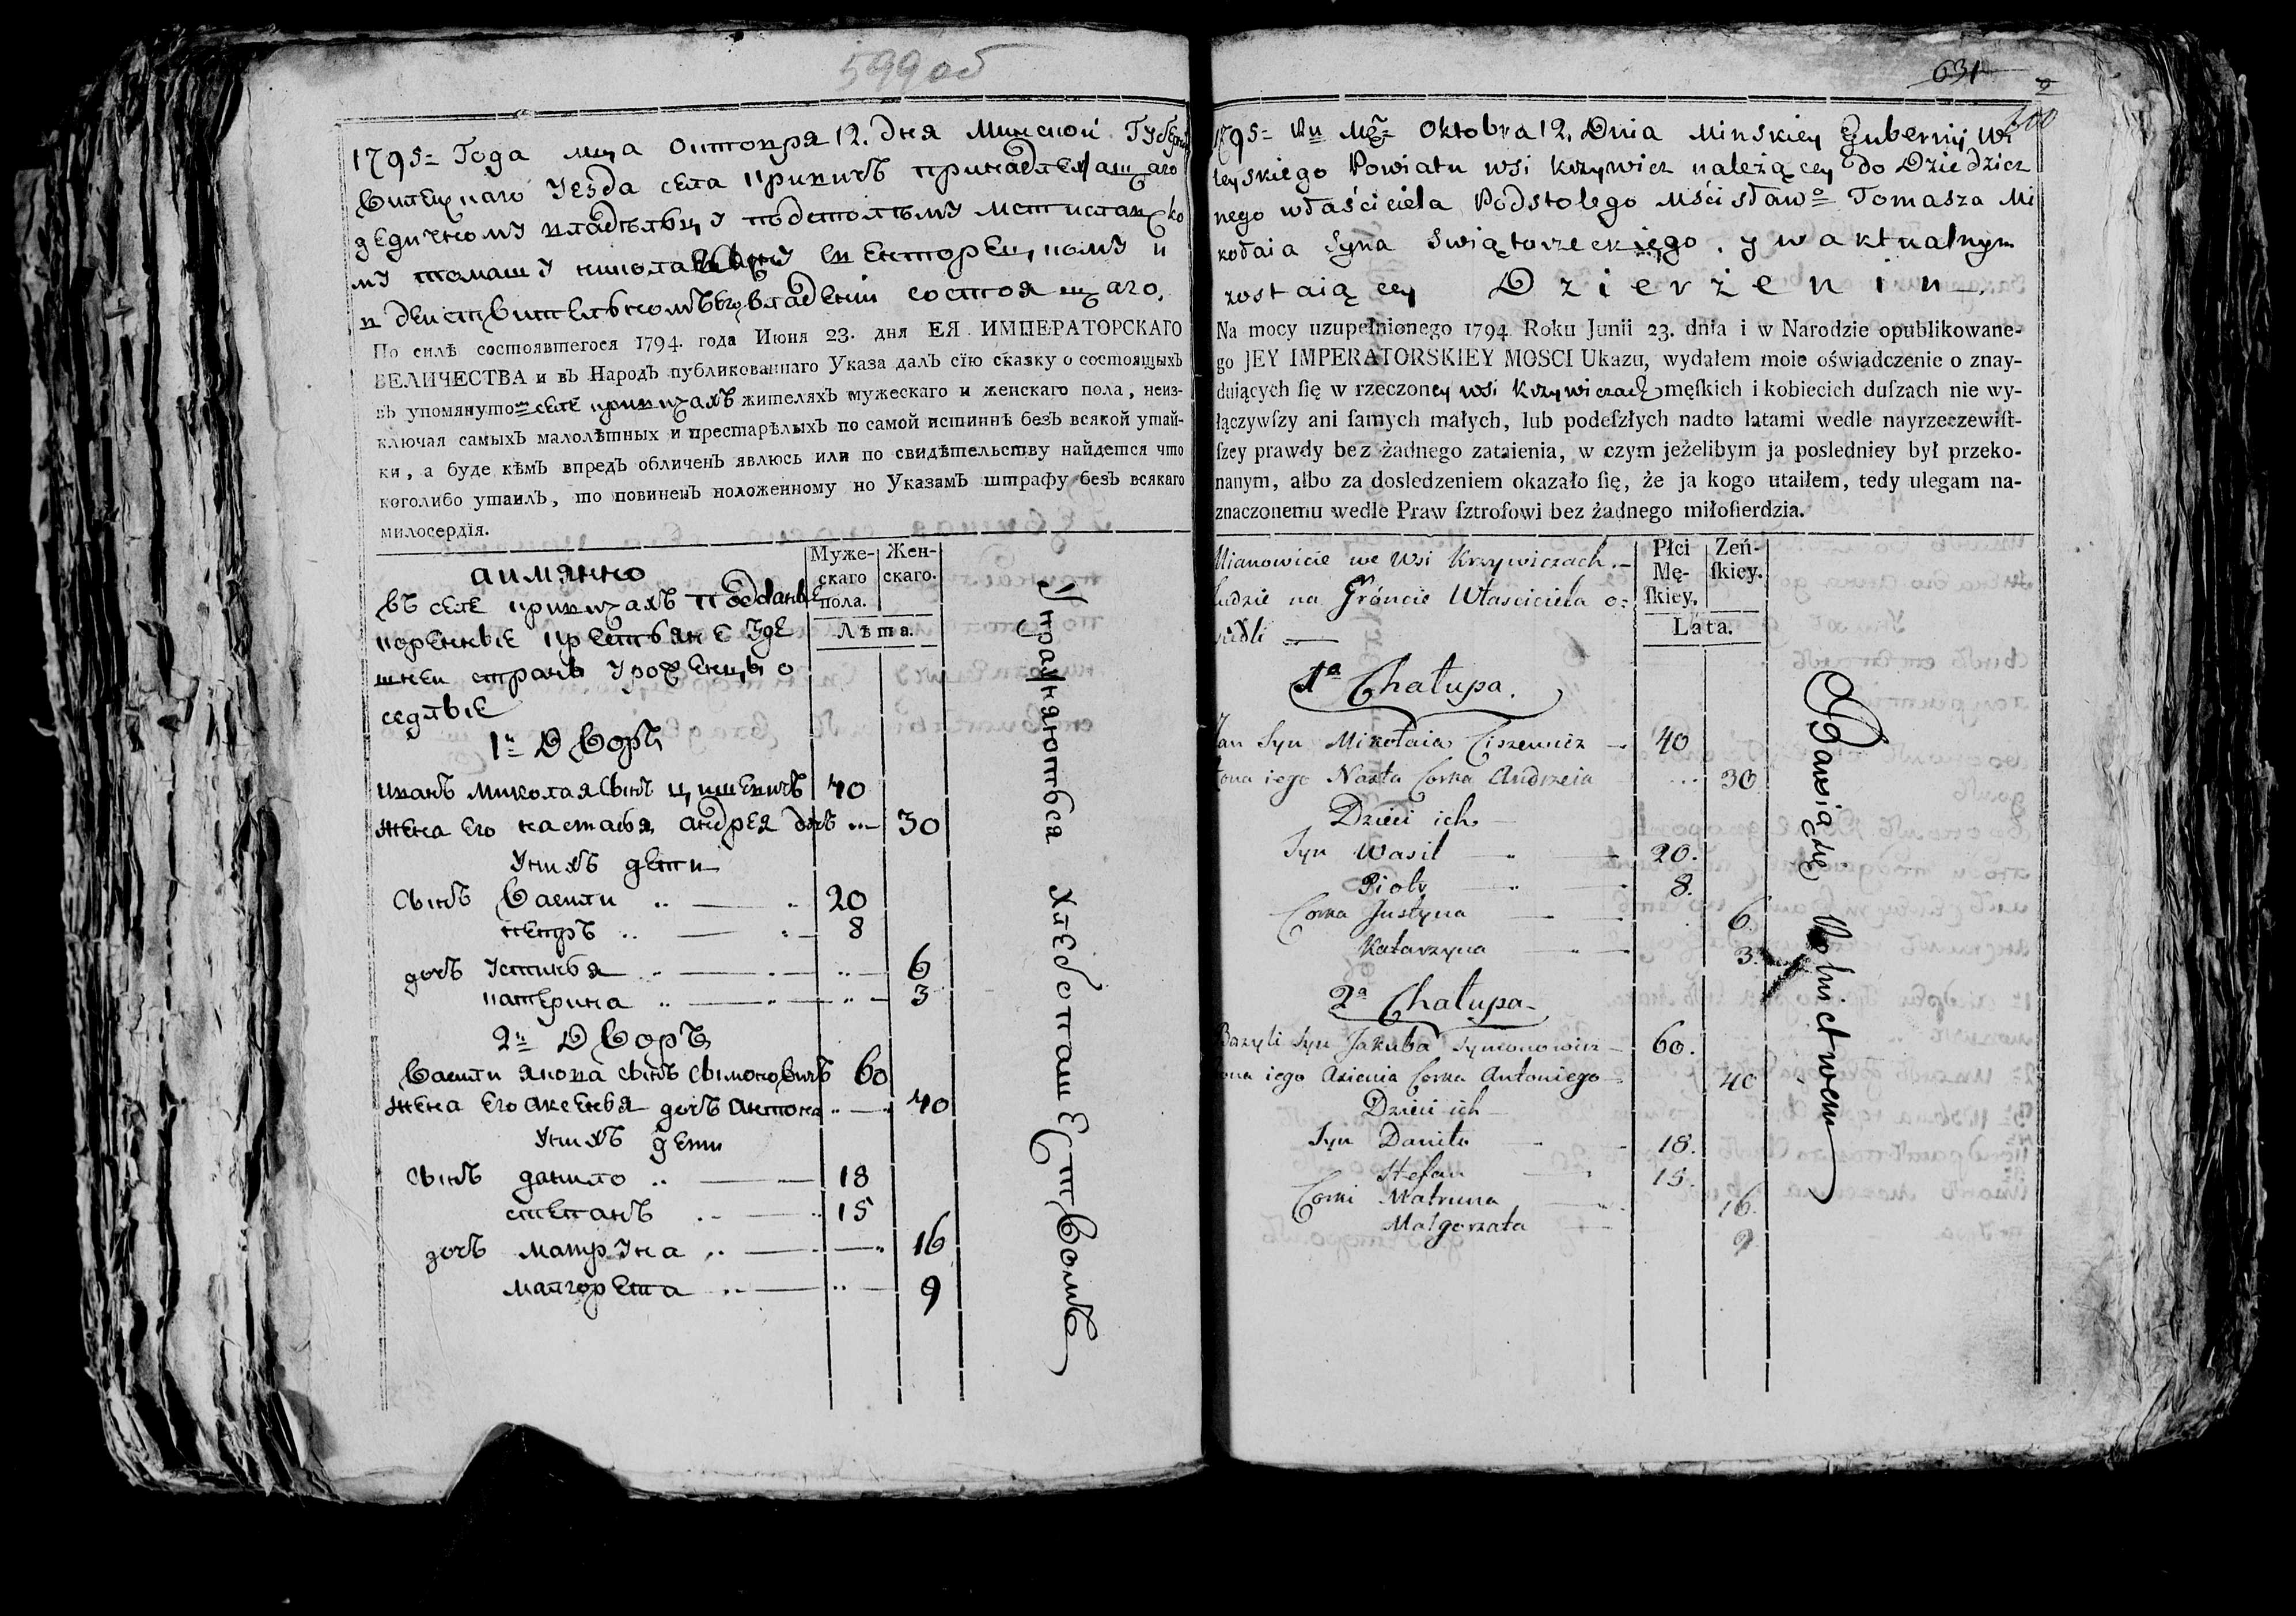 599 об
1795= Года мца октовря 12. дня Минской Губерн
Вилецкаго уезда села кривичъ принадлежащаго
дедичному владельцу подстолему мстиславско
му томашу николая сыну свенторецкому и
в действительномъ его владении состоящаго,
По силѣ состоявшегося 1794. года Июня 23. дня ЕЯ ИМПЕРАТОРСКАГО
ВЕЛИЧЕСТВА и въ Народъ публикованнаго Указа далъ сію сказку о состоящыхъ
въ упомянутомъ селе кривичахъ жителяхъ мужескаго и женскаго пола, неиз-
ключая самыхъ малолѣтныхъ и престарѣлыхъ по самой истиннѣ безъ всякой утай-
ки, а буде кѣмъ впредъ обличенъ явлюсь или по свидѣтельству найдется что
коголибо утаилъ, то повиненъ положенному по Указамъ штрафу безъ всякаго
милосердія.
аимянно
въ селе кривичахъ подданые
коренные крестьяне зде
шнеи страны уроженцы о
седлые
Муже-
скаго
пола.
Жен-
скаго.
Лѣта.
1й Дворъ
иванъ миколая сынъ цишевичъ 40
жена его настасья андрея дочъ 30
у нихъ дети
сынъ василий 20
петръ 8
дочъ устинья 6
катерина 3
2й Дворъ
василий якова сынъ сымоновичъ 60
жена его аксенья дочъ антона 40
у нихъ дети
сынъ данило 18
степанъ 15
дочъ матруна 16
малгорета 9
Упражняются хлебопашествомъ
631
2
600
1795= Ru Mca Oktobra 12. Dnia Minskiey Gubernij Wi
leyskiego Powiatu wsi Krzywicz należącey do Dziedzicz
nego właściciela Podstolego Mścisław= Tomasza Mi
kołaia Syna Swiątorzeckiego, y w aktualnym
zostaiącey Dzierżeniu.
Na mocy uzupełnionego 1794 Roku Junii 23. dnia i w Narodzie opublikowane-
go JEY IMPERATORSKIEY MOSCI Ukazu, wydałem moie oświadczenie o znay-
duiących ſię w rzeczoney wsi Krzywiczach męſkich i kobiecich duſzach nie wy-
łączywſzy ani ſamych małych, lub podeſzłych nadto latami wedle nayrzeczewiſt-
ſzey prawdy bez żadnego zataienia, w czym jeżelibym ja posledniey był przeko-
nanym, albo za dosledzeniem okazało ſię, że ja kogo utaiłem, tedy ulegam na-
znaczonemu wedle Praw ſztrofowi bez żadnego miłoſierdzia.
Mianowicie we Wsi Krzywiczach.
Ludzie na Gróncie Własciciela o=
siedli
Płci
Mę-
ſkiey.
Zeń-
ſkiey.
Lata.
1a Chałupa.
Jan Syn Mikołaia Ciszewicz 40
żona iego Nasta Corka Andrzeia 30
Dzieci ich
Syn Wasil 20.
Piotr 8.
Corka Justyna 6.
Katarzyna 3.
2a Chałupa
Bazyli Syn Jakuba Symonowicz 60.
żona iego Axienia Corka Antoniego 40
Dzieci ich
Syn Daniło 18.
Stefan 15.
Corki Matruna 16.
Malgorzata 9
Bawią się Rolnictwem